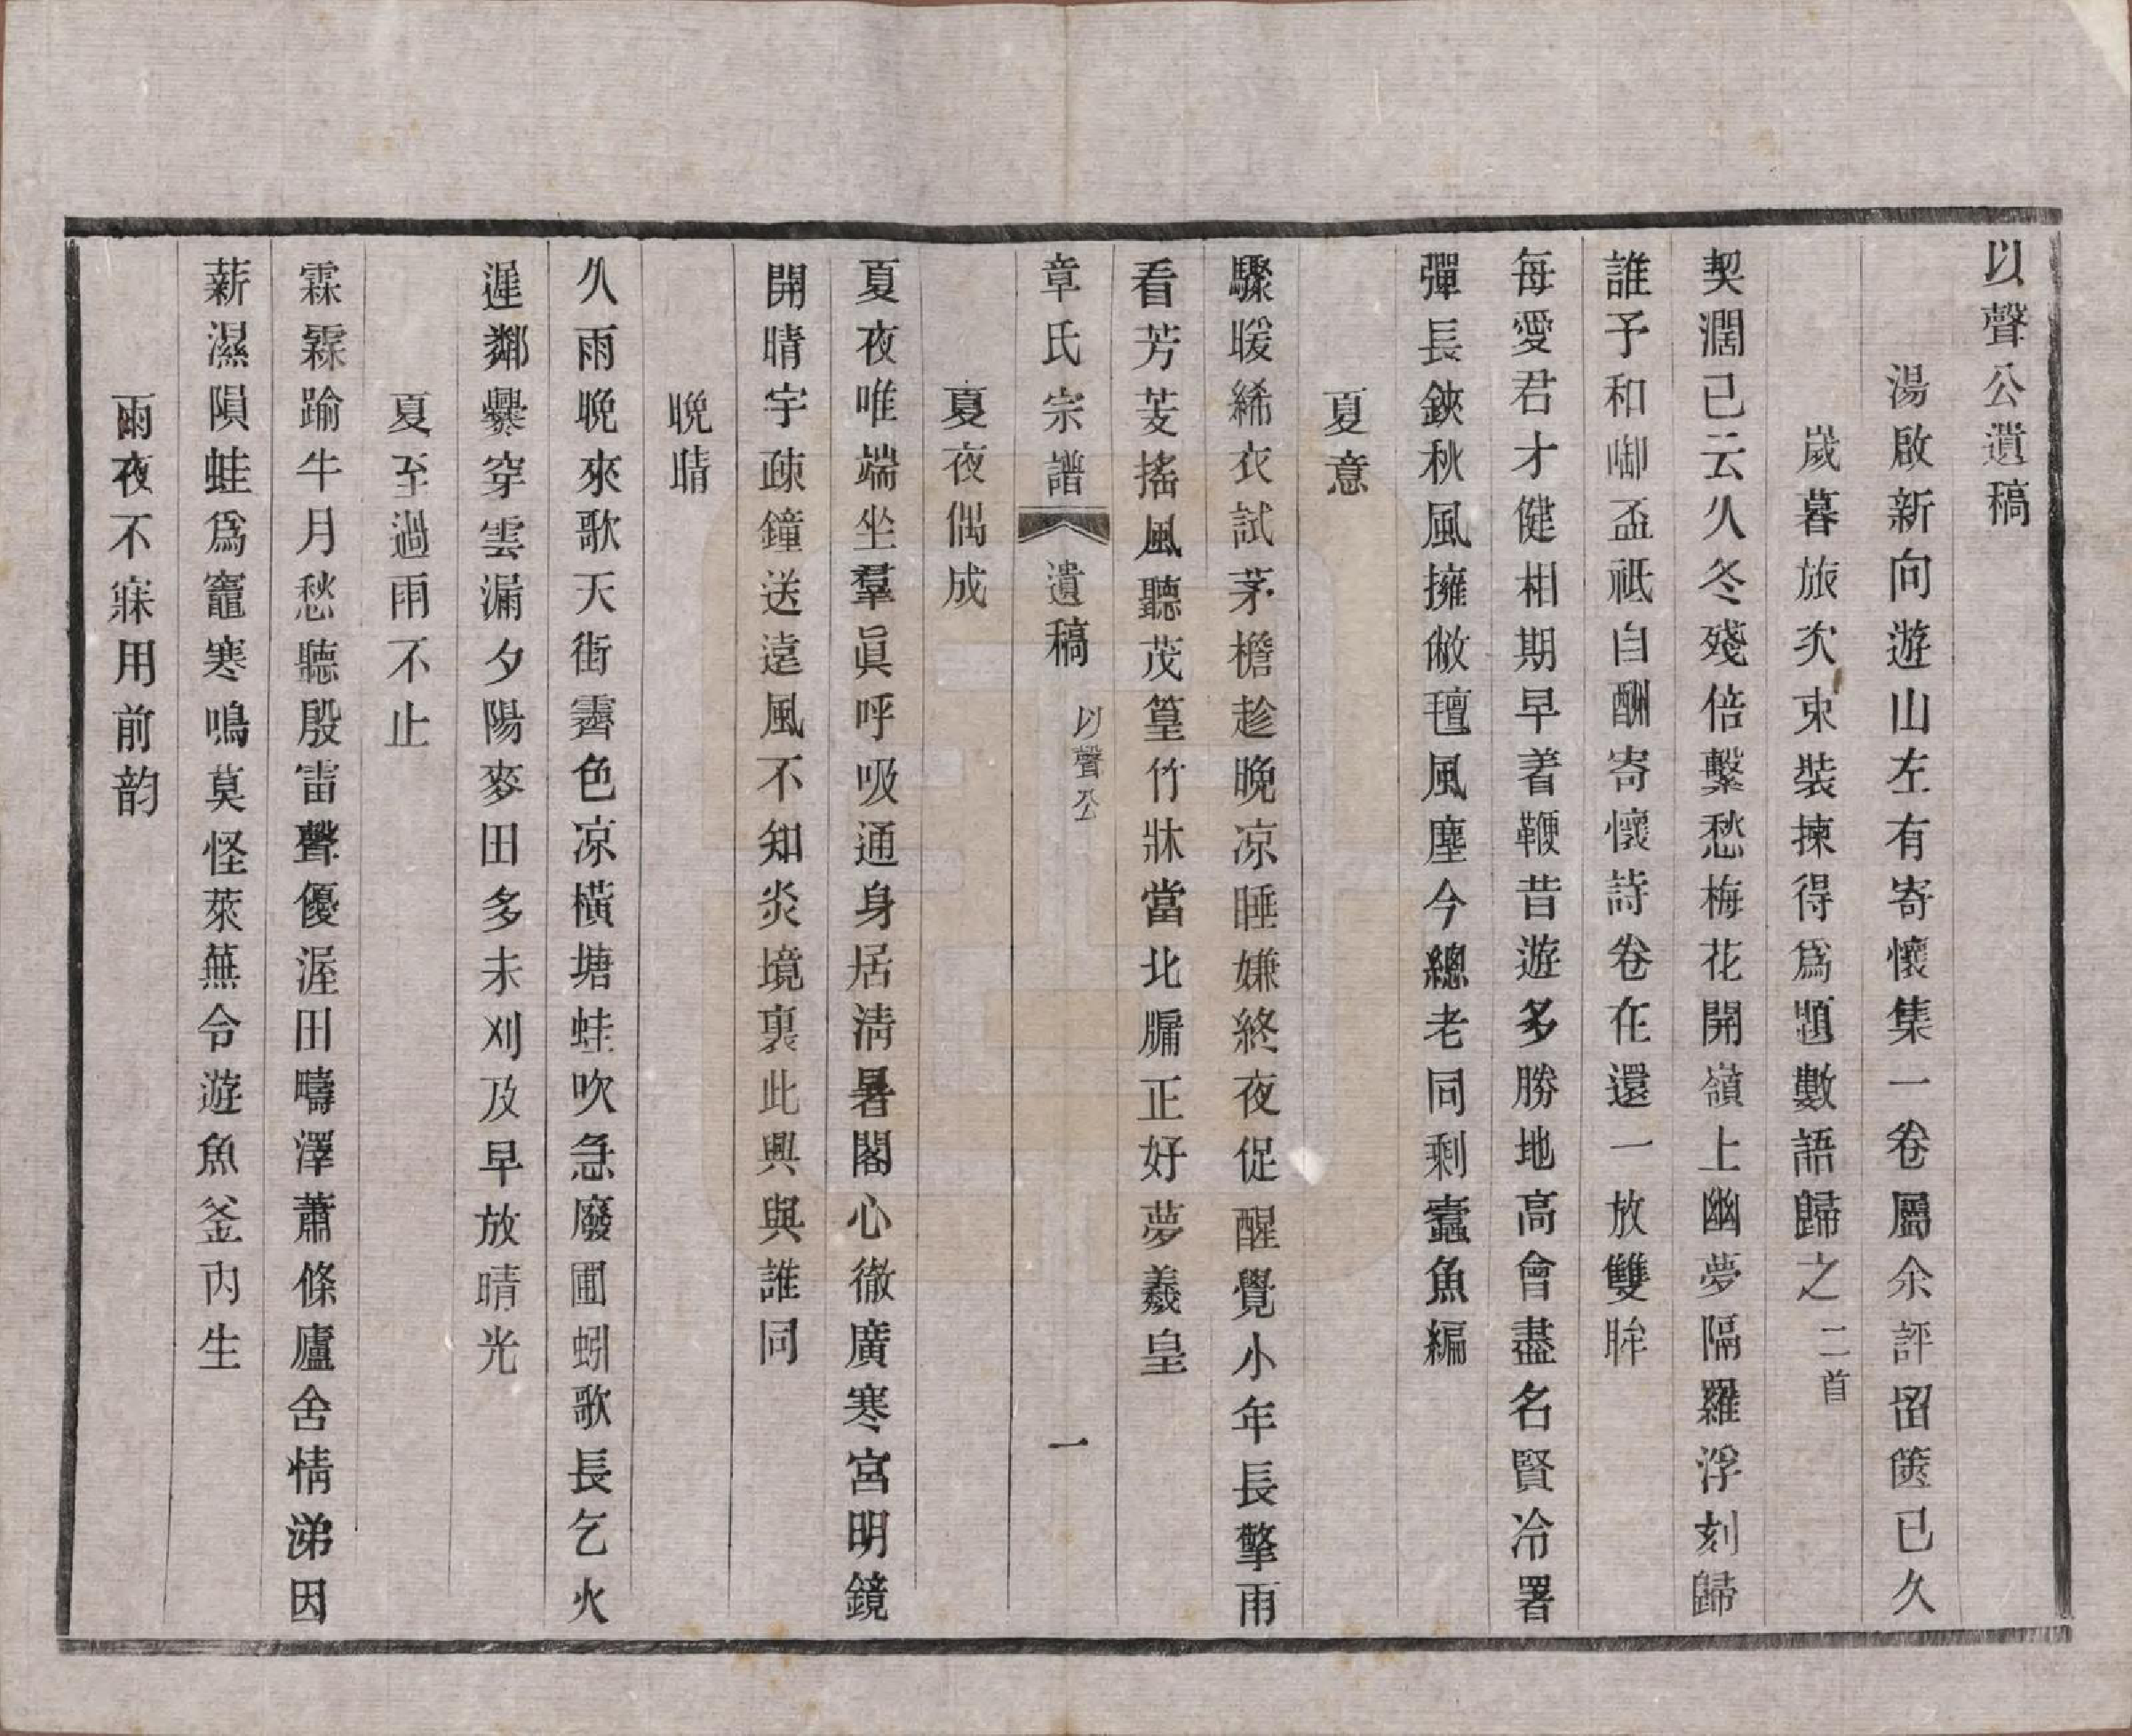 以聲公遺稿
湯啟新向遊山左有寄懷集一卷屬余評畱篋已久
歲暮旅次束裝揀得爲題數語歸之二首
契濶已云久冬殘倍繫愁梅花開嶺上幽夢隔羅浮刻歸
誰予和啣盃祇自酬寄懷詩卷在還一放雙眸
每愛君才健相期早着鞭昔遊多勝地高會盡名賢冷署
彈長鋏秋風擁敝氊風塵今總老同剩蠹魚編
夏意
驟暖絺衣試茅檐趁晚凉睡嫌終夜促醒覺小年長擎雨
看芳芰搖風聽茂篁竹牀當北牖正好夢羲皇
章氏宗譜 遺稿 以聲公 一
夏夜偶成
夏夜唯端坐羣眞呼吸通身居淸暑閣心徹廣寒宮明鏡
開晴宇疎鐘送遠風不知炎境裏此興與誰同
晚晴
久雨晚來歌天街霽色凉橫塘蛙吹急廢圃蚓歌長乞火
遲鄰爨穿雲漏夕陽麥田多未刈及早放晴光
夏至過雨不止
霖霖踰半月愁聽殷雷聲優渥田疇澤蕭條廬舍情涕因
薪濕隕蛙爲竈寒鳴莫怪萊蕪令遊魚釜內生
雨夜不寐用前韵